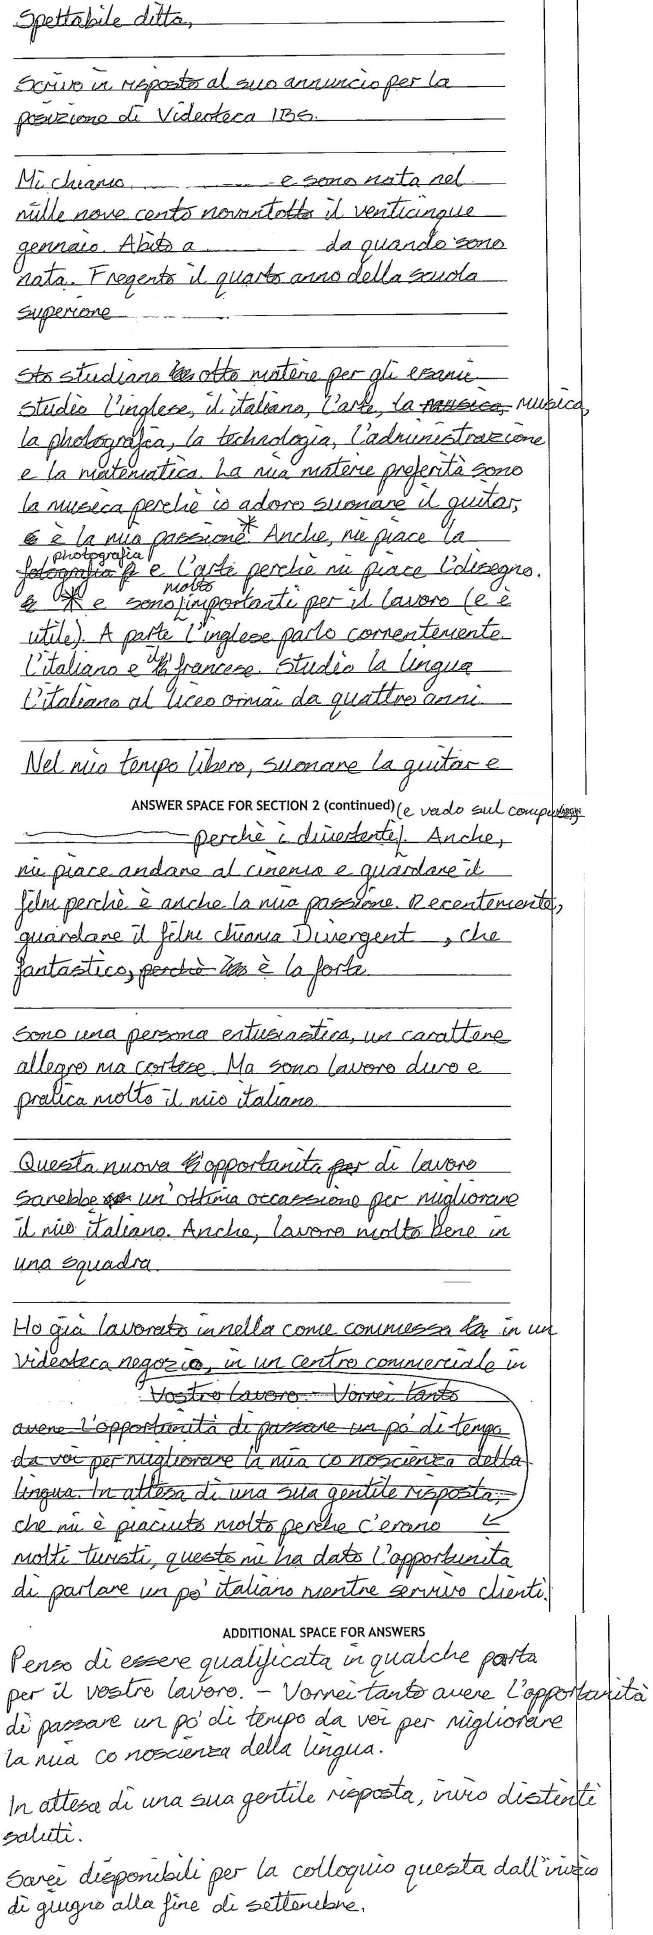 Spettabile ditta,
Scrivo in risposto al suo annuncio per la
posizione di Videoteca IBS.
Mi chiamo e sono nata nel
mille nove cento novantotto il venticinque
gennaio. Abito a da quando sono
nata. Freqento il quarto anno della scuola
superiore
Sto studiano otto materie per gli esami
studio l'inglese, il italiano, l'arte, la musica, musica,
la photografia, la technologia, l'administrazione
e la matematica. La mia materie preferità sono
la musica perchè io adoro suonare il guitar,
è la mia passione.* Anche, mi piace la
photografia
fotografia e l'arte perchè mi piace l'disegno.
molto
* e sono importanti per il lavoro (e è
utile). A parte l'inglese parlo correntemente
l'italiano e il francese. Studio la lingua
l'italiano al liceo ormai da quattro anni.
Nel mio tempo libero, suonare la guitar e
ANSWER SPACE FOR SECTION 2 (continued) (e vado sul computer
MARGIN
perchè è divertente). Anche,
mi piace andare al cinema e guardare il
film perchè è anche la mia passione. Recentemente,
guardare il film chiama Divergent, che
fantastico, perchè è la forte.
Sono una persona entusiastica, un carattere
allegro ma cortese. Ma sono lavoro duro e
pratica molto il mio italiano.
Questa nuova opportunita per di lavoro
sarebbe un'ottima occassione per migliorare
il mio italiano. Anche, lavoro molto bene in
una squadra.
Ho già lavorato innella come commessa in un
videoteca negozio, in un centro commerciale in
Vostro lavoro - Vorrei tanto
avere l'opportunità di passare un po' di tempo
da voi per migliorare la mia co noscienza della
lingua. In attesa di una sua gentile risposta,
che mi è piaciuto molto perche c'erano
molti turisti, questo mi ha dato l'opportunita
di parlare un po' italiano mentre servivo clienti.
ADDITIONAL SPACE FOR ANSWERS
Penso di essere qualificata in qualche parta
per il vostro lavoro. - Vorrei tanto avere l'opportunità
di passare un po' di tempo da voi per migliorare
la mia co noscienza della lingua.
In attesa di una sua gentile risposta, invio distinti
saluti.
Sarei disponibili per la colloquio questa dall'inizio
di giugno alla fine di settembre.